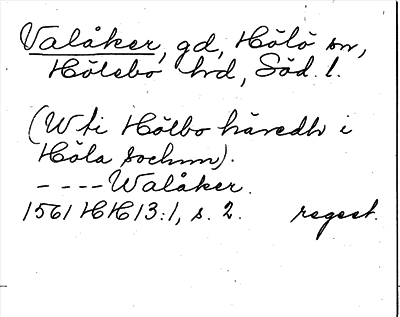 Valåker, gd, Hölö sn,
Hölebo hd, Söd. l.
(W ti Hölbo häredh i
Höla sochnn).
---- Walåker.
1561 HH 13:1, s. 2. regest.